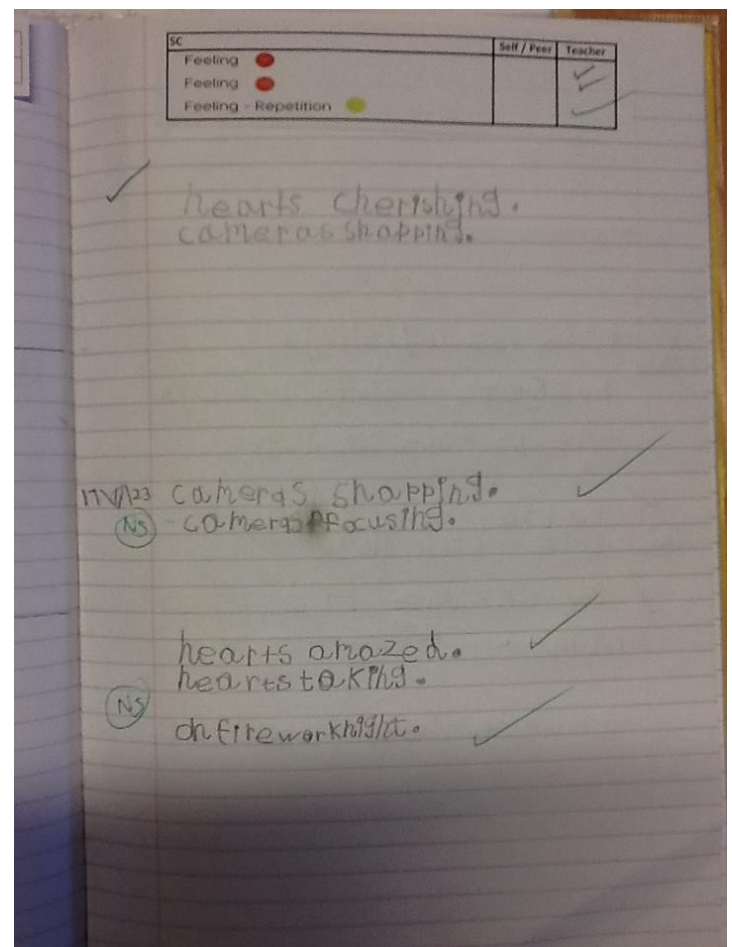 SC Self / Peer Teacher
Feeling
Feeling
Feeling - Repetition
hearts cherishing.
cameras snapping.
cameras snapping.
NS cameras focusing.
hearts amazed.
hearts taking.
NS
on firework night.